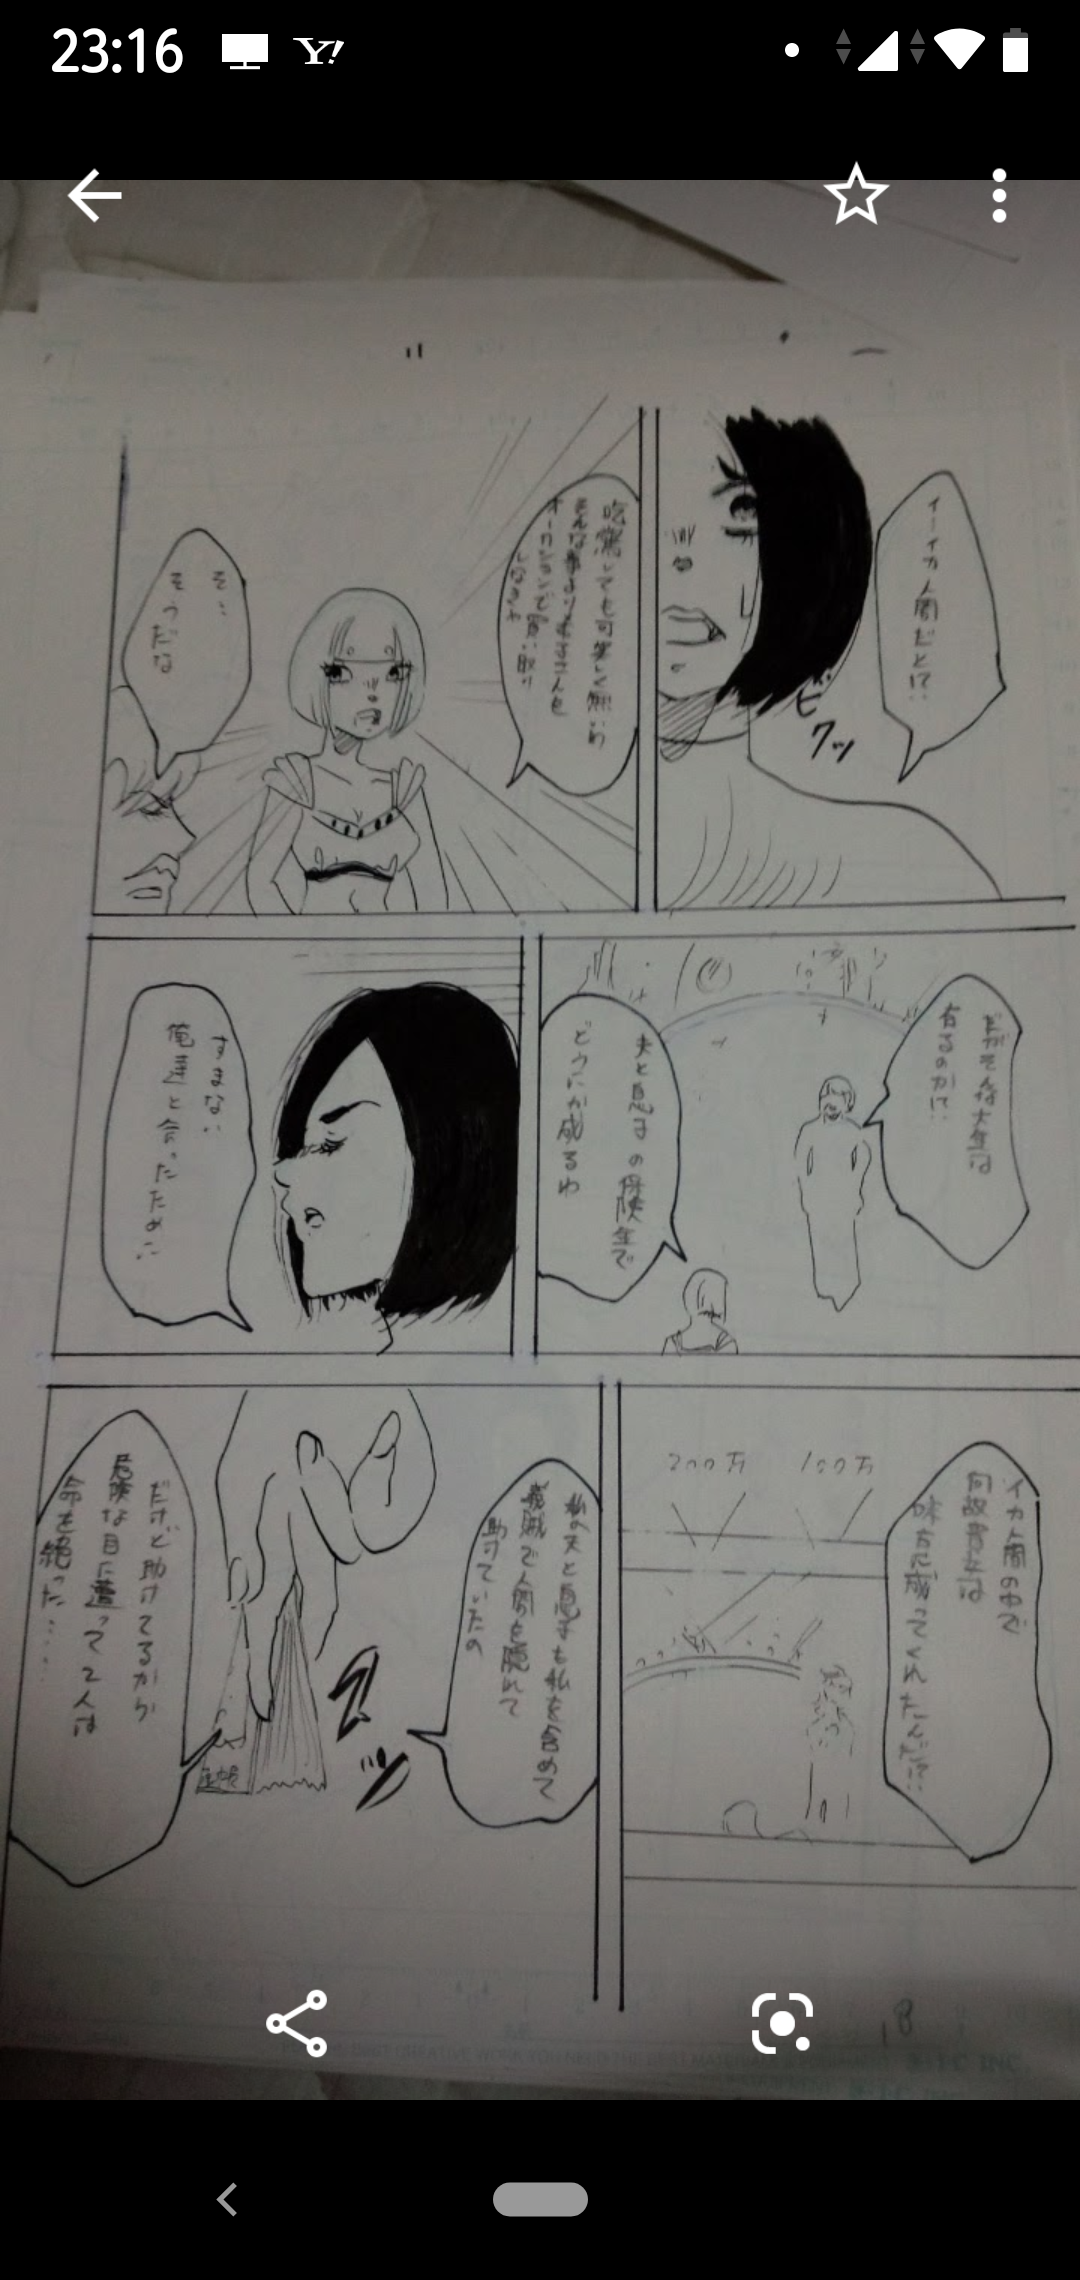 23:16
Y!
イーイカ人間だと!?
ビクッ
吃驚しても可笑しく無いわ
オークションで買い取り
そ…
そうだな
だがそんな大金は
有るのか!?
夫と息子の保険金で
どうにか成るわ
すまない
俺達と会ったために
イカ人間の中で
何故貴女は
味方に成ってくれたんだ!?
100万
200万
私の夫と息子も私を含めて
義賊で人間を隠れて
助けていたの
スッ
だけど助けてるから
危険な目に遭って2人は
命を絶った……
18